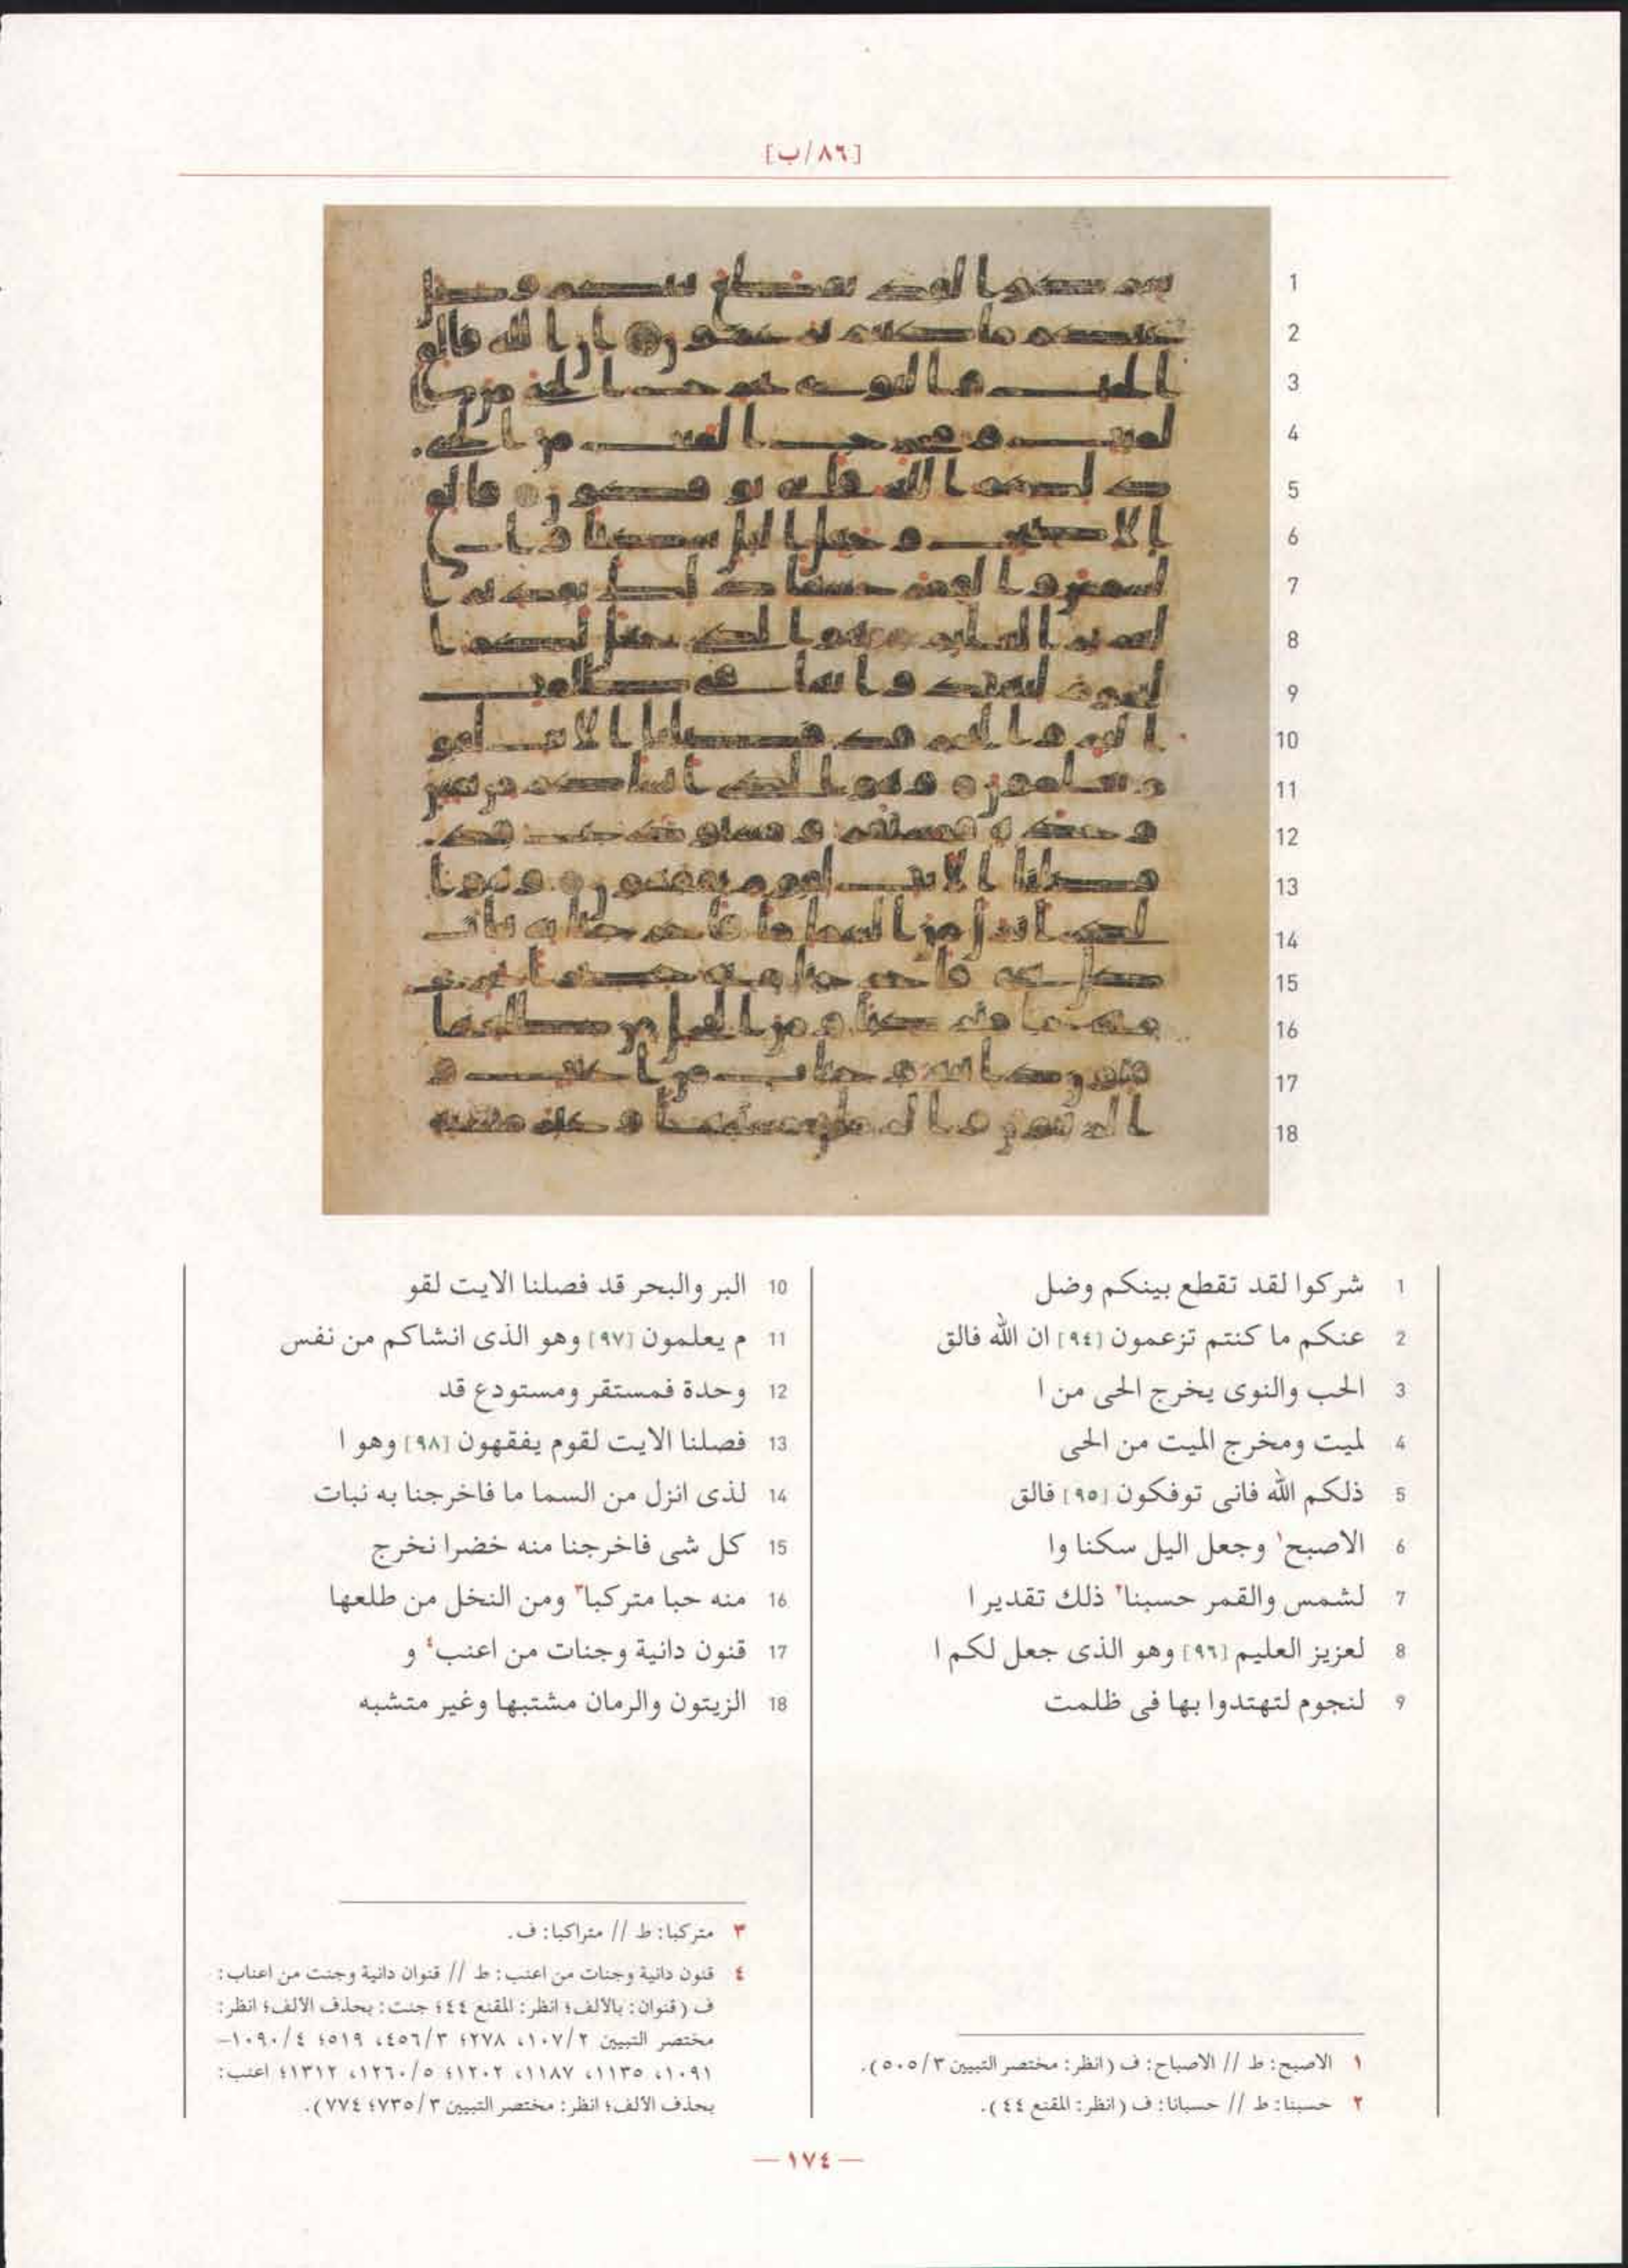 [٨٦/ب]
1 شركوا لقد تقطع بينكم وضل
2 عنكم ما كنتم تزعمون [٩٤] ان الله فالق
3 الحب والنوى يخرج الحى من ا
4 لميت ومخرج الميت من الحى
5 ذلكم الله فانى توفكون [٩٥] فالق
6 الاصبح١ وجعل اليل سكنا وا
7 لشمس والقمر حسبنا٢ ذلك تقدير ا
8 لعزيز العليم [٩٦] وهو الذى جعل لكم ا
9 لنجوم لتهتدوا بها فى ظلمت
10 البر والبحر قد فصلنا الايت لقو
11 م يعلمون [٩٧] وهو الذى انشاكم من نفس
12 وحدة فمستقر ومستودع قد
13 فصلنا الايت لقوم يفقهون [٩٨] وهو ا
14 لذى انزل من السما ما فاخرجنا به نبات
15 كل شى فاخرجنا منه خضرا نخرج
16 منه حبا متركبا٣ ومن النخل من طلعها
17 قنون دانية وجنات من اعنب٤ و
18 الزيتون والرمان مشتبها وغير متشبه
١ الاصبح: ط // الاصباح: ف (انظر: مختصر التبيين ٥٠٥/٣).
٢ حسبنا: ط // حسبانا: ف (انظر: المقنع ٤٤).
٣ متركبا: ط // متراكبا: ف.
٤ قنون دانية وجنات من اعنب: ط // قنوان دانية وجنت من اعناب:
ف (قنوان: بالألف؛ انظر: المقنع ٤٤؛ جنت: بحذف الألف؛ انظر:
مختصر التبيين ١٠٧/٢، ٢٧٨؛ ٤٥٦/٣، ٥١٩؛ ١٠٩٠/٤–
١٠٩١، ١١٣٥، ١١٨٧، ١٢٠٢؛ ١٢٦٠/٥، ١٣١٢؛ اعنب:
بحذف الألف؛ انظر: مختصر التبيين ٧٣٥/٣؛ ٧٧٤).
— ١٧٤ —